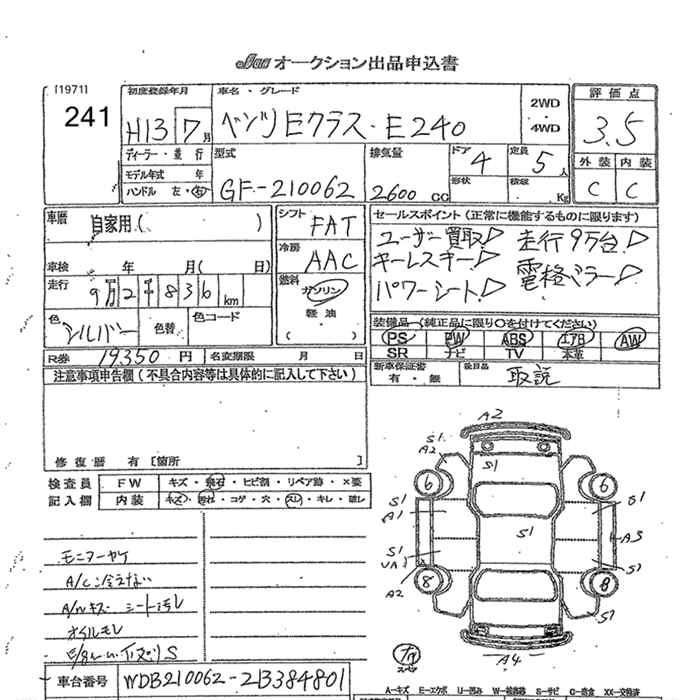 Jaa オークション出品申込書
[1971]
241
初度登録年月
H13 7月
車名・グレード
ベンツEクラス・E240
2WD
4WD
評価点
3.5
ディーラー・並行
モデル年式 年
ハンドル 左・右
型式
GF-210062
排気量
2600 CC
ドア 4
形状
定員 5人
積載 Kg
外装 内装
C C
車歴 自家用( )
車検 年 月( 日)
走行 9万2千836km
色 シルバー
色替
色コード
シフト FAT
冷房 AAC
燃料 ガソリン
軽油
( )
セールスポイント(正常に機能するものに限ります)
ユーザー買取! 走行9万台!
キーレスキー! 電格ミラー!
パワーシート!
装備品(純正品に限り〇を付けてください)
PS PW ABS エアB AW
SR ナビ TV 本革
R券 19350円
名変期限 月 日
新車保証書
有・無
後日品
取説
注意事項申告欄(不具合内容等は具体的に記入して下さい)
修復歴 有 [箇所 ]
検査員
記入欄
FW キズ・飛石・ヒビ割・リペア跡・×要
内装 キズ・汚れ・コゲ・穴・スレ・キレ・破レ
モニターヤケ
A/C冷えない
A/Wキズ シート汚レ
オイルモレ
車台番号 WDB210062-2B384801
A2
S1
A2
S1
6
6
S1
A1
S1
S1
A3
S1
8
A2
8
S1
S1
A4
A-キズ E-エクボ U-凹み W-補修跡 S-サビ C-腐食 XX-交換済